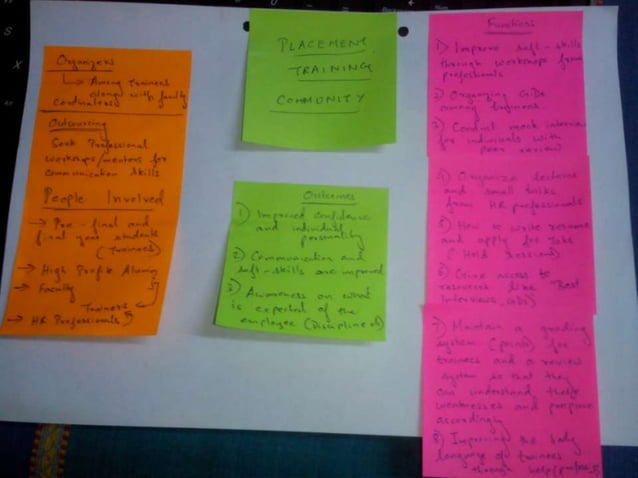 Organizers
↳ Among trainers
along with faculty
Cordinaters
Outsourcing
Seek Professional
workshops/mentors for
communication skills
People Involved
→ Pre-final and
final year students
(Trainees)
→ High Profile Alumni
→ Faculty
Trainers
→ HR Professionals
PLACEMENT
TRAINING
COMMUNITY
Outcomes
1) Improved confidence
and individual
personality
2) Communication and
soft-skills are improved
3) Awareness on what
is expected of the
employee (Discipline
Functions
1) Improve soft-skills
through workshops from
professionals
2) Organizing GDs
among trainees.
3) Conduct mock interview
for individuals with
peer review
4) Organize lectures
and small talks
from HR professionals
5) How to write resume
and apply for Jobs
(Hold sessions)
6) Give access to
resources like "Best
Interviews,
7) Maintain a grading
system (points) for
trainees and a review
system so that they
can understand their
weaknesses and prepare
accordingly
8) Improving the body
language of trainees
through help